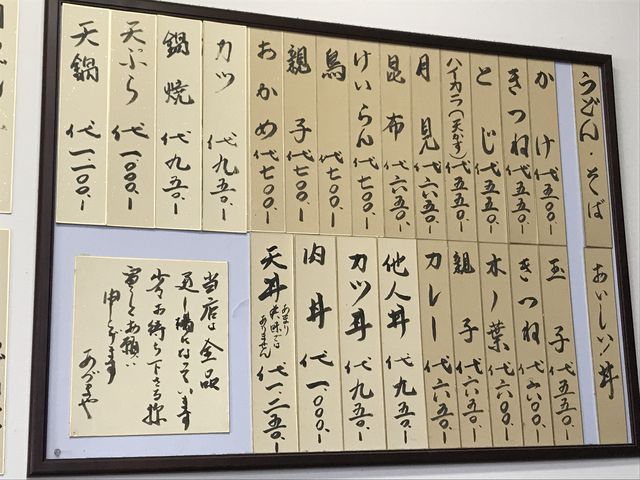 うどん・そば
かけ 代五〇〇.ー
きつね 代五五〇.ー
とじ 代五五〇.ー
ハイカラ(天かす) 代五五〇.ー
月見 代六五〇.ー
昆布 代六五〇.ー
けいらん 代七〇〇.ー
鳥 代七〇〇.ー
親子 代七〇〇.ー
おかめ 代七〇〇.ー
カツ 代九五〇.ー
鍋焼 代九五〇.ー
天ぷら 代一、〇〇〇.ー
天鍋 代一、一〇〇.ー
おいしい丼
玉子 代五五〇.ー
きつね 代六〇〇.ー
木ノ葉 代六〇〇.ー
親子 代六五〇.ー
カレー 代六五〇.ー
他人丼 代九五〇.ー
カツ丼 代九五〇.ー
肉丼 代一、〇〇〇.ー
天丼 代一、二五〇.ー
あまり
美味では
ありません
当店は全品
になっています
少々お待ち下さる様
宜しくお願い
申し上げます
あづまや